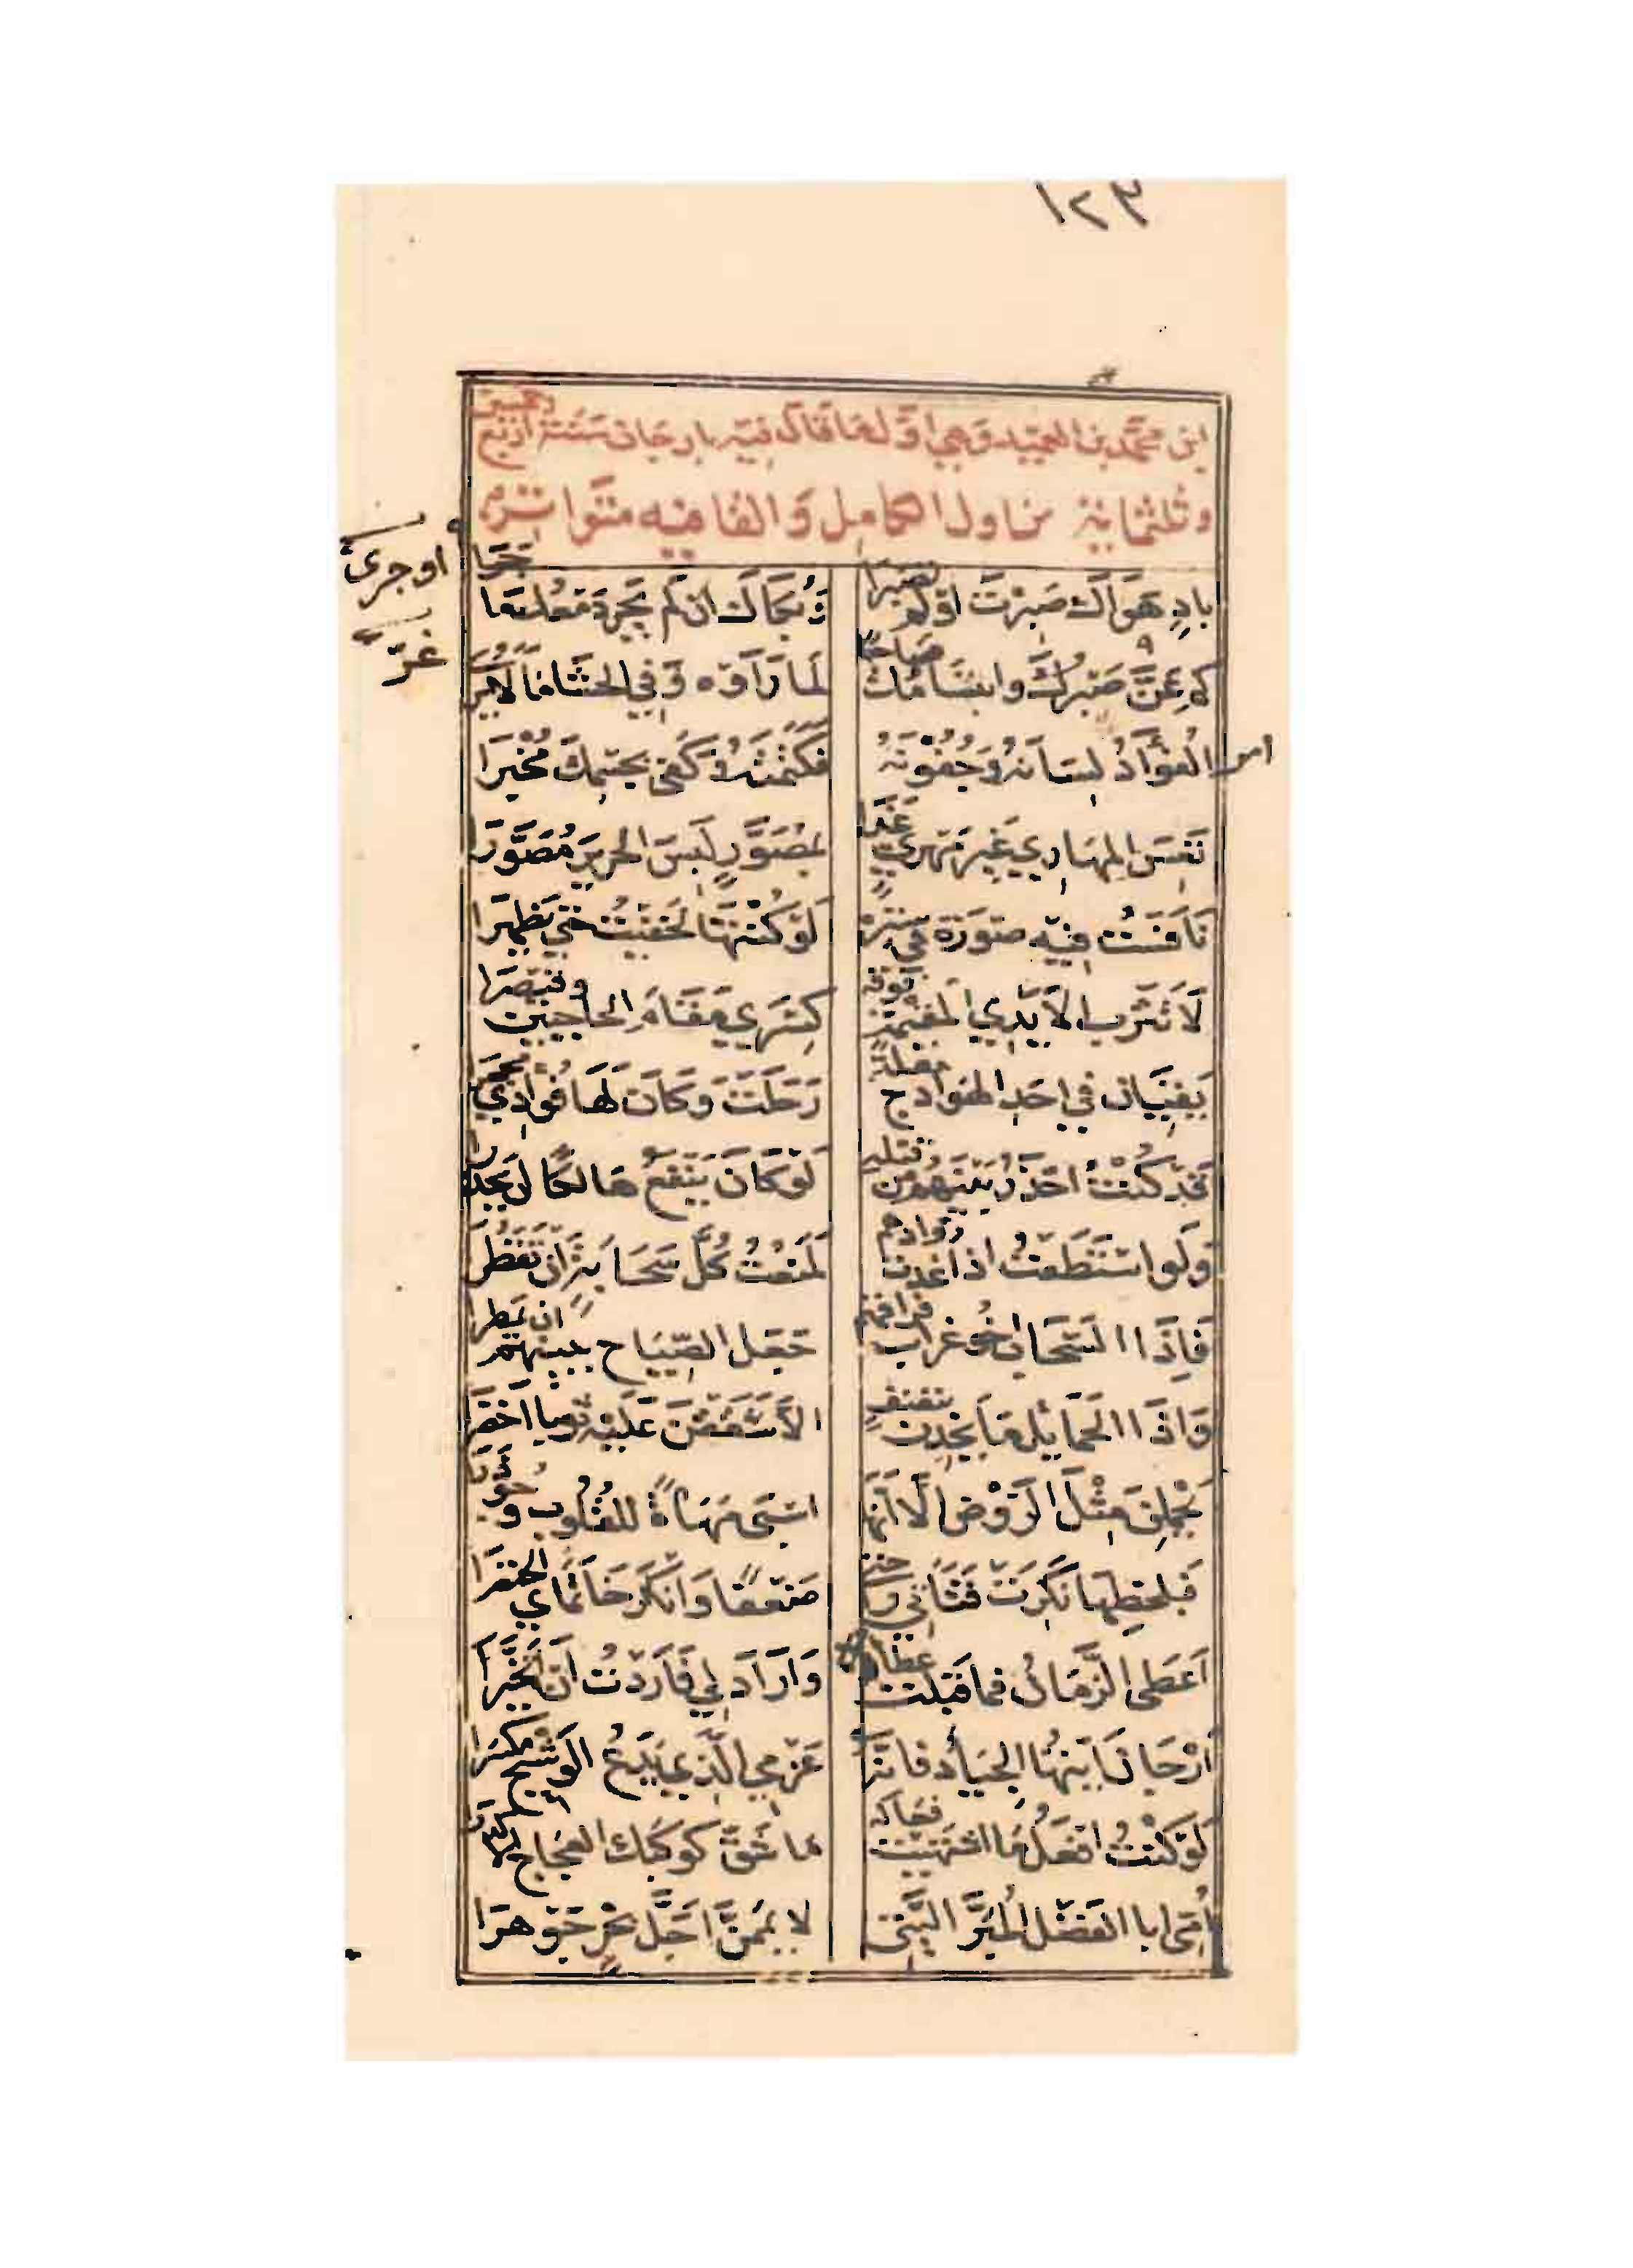 ١٢٣
ابن محمد بن العميد وهي اول ما قال فيه بارجان سنة اربع وخمسين
وثلثماية من اول الكامل والقافيه متواتر
بادٍ هَوَاكَ صَبرْتَ اوْ لم تصبرَا وَبُكَاكَ ان لَم يَجرِ دَمعُك او جرى
كم غرَّ صَبرُكَ وابتسَامُكَ صَاحبًا لَمَا رَآه وَفي الحَشَا مَا لَا يُرى
امر الفُؤَادُ لِسَانهُ وَجُفُونَهُ فَكَتَمْنَهُ وَكَفى بجسْمِكَ مُخْبِرَا
تَعِسَ المهَاري غَيرَ مَهرِيٍّ غَدَا بمُصَوَّرٍ لَبِسَ الحَريرَ مُصَوَّرَا
نَافَسْتُ فِيهِ صورَةً في سترهِ لَوْ كُنْتُهَا لَخفيْتُ حَتى يَظهَرَا
لَا تَترَبِ الأَيْدي المُقيمَةُ فوقه كِسْرَى مَقَامَ الحَاجبَينِ وقَيصَرَا
يَقِيَانِ في احَدِ الهَوَادجِ مقلةً رَحَلَتْ وَكَانَ لَهَا فُؤادِي محجرا
قَد كُنْتُ احْذَرُ بَيْنَهُمْ من قبلهِ لَوْ كَانَ يَنْفَعُ حَائنًا ان يَحْذرَا
وَلَو استَطَعْتُ اذ اغْتدت روادهم لَمَنَعْتُ كُلَّ سَحَابَةٍ ان تقطُرَا
فَاذَا السَّحَابُ اخُو غُرَابِ فراقهم جَعَلَ الصِّيَاحَ بِبَيْنِهِم ان يَمطرا
وَاذَا الحَمَائِلُ مَا يَخِدنَ بنفنفٍ الَّا شَقَقْنَ عَلَيْهِ ثَوبًا اخضَرَا
يَحْمِلنَ مِثْلَ الرَّوْضِ الَّا انهَا اسْبَى مَهَاةً للقُلُوبِ وجُؤذَرَا
فَبلحظِهَا نَكِرَتْ قَنَاتي رَاحتي ضَعْفًا وَانْكَرَ خَاتَمَايَ الخِنْصَرَا
اَعْطَى الزَّمَانُ فمَا قَبِلتُ عَطاءه وَارَادَ لي فَارَدْتُ انْ اتَخَيَّرَا
اَرْجَانَ ايَّتهَا الجيَادُ فانهُ عَزْمي الَّذي يَدَعُ الوَشيجَ مكسَّرَا
لَوْ كُنْتُ افعَلُ مَا اشْتَهَيْتِ فعَالهُ مَا شَقَّ كَوكَبُكِ العجَاجَ الاكدَرَا
اُمّي ابَا الفَضْلِ المُبِرَّ اليَّتى لايَمِّمَنَّ اجَلَّ بحرٍ جَوهَرَا
او جرى
غرّ